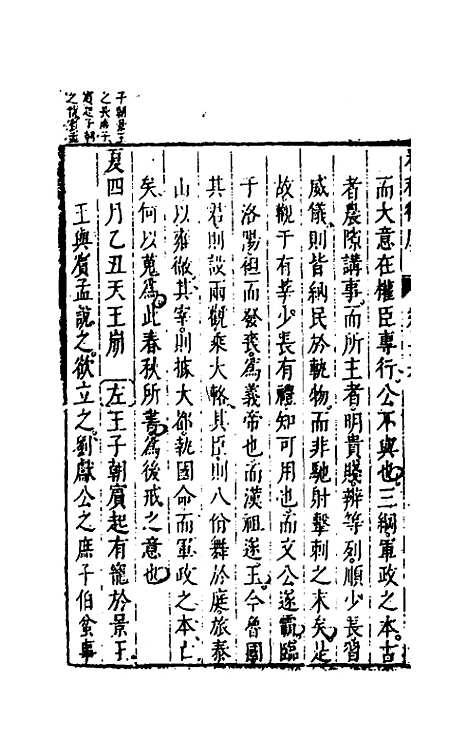 而大意在權臣專行公不與也三綱軍政之本古
者農隙講事而所主者明貴賤辨等列順少長習
威儀則皆納民於軌物而非馳射擊刺之末矣是
故觀于有莘少長有禮知可用也而文公遂霸臨
于洛陽袒而發喪爲義帝也而漢祖遂王今魯國
其君則設兩觀乘大輅其臣則八佾舞於庭旅泰
山以雍徹其宰則據大都執國命而軍政之本亡
矣何以蒐爲此春秋所書爲後戒之意也
夏四月乙丑天王崩 左王子朝賓起有寵於景王
王與賓孟說之欲立之劉獻公之庶子伯蚠事
子朝景王
之長庶子
賓起子朝
之傅賓孟